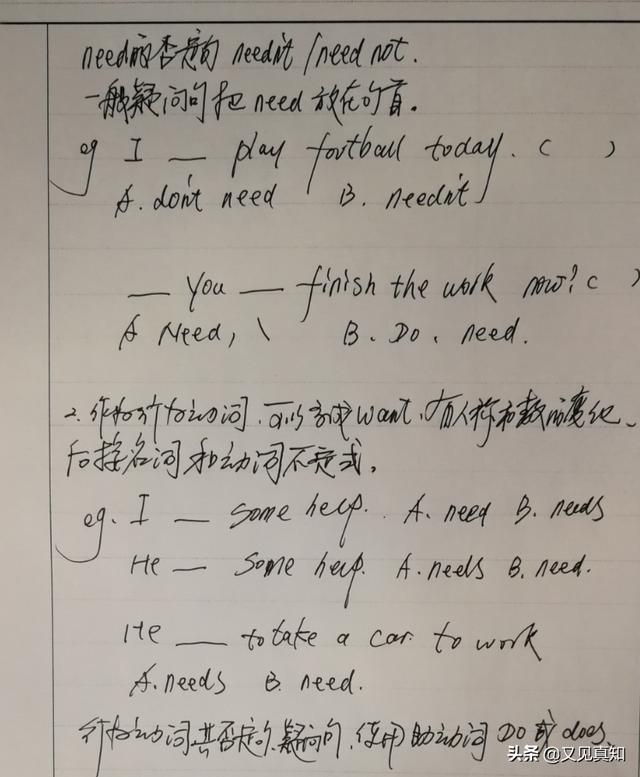 need的否定句 needn't / need not.
一般疑问句把 need 放在句首。
eg I __ play football today. (    )
A. don't need    B. needn't
__ you __ finish the work now? (  )
A Need, \    B. Do、need.
2. 作为行为动词,可以写成want、有人称和数的变化、
后接名词和动词不定式。
eg. I __ some help.  A. need  B. needs
He __ some help.  A. needs  B. need.
He __ to take a car to work
A. needs    B. need.
行为动词其否定句、疑问句、使用助动词 Do 或 does
头条 @又见真知